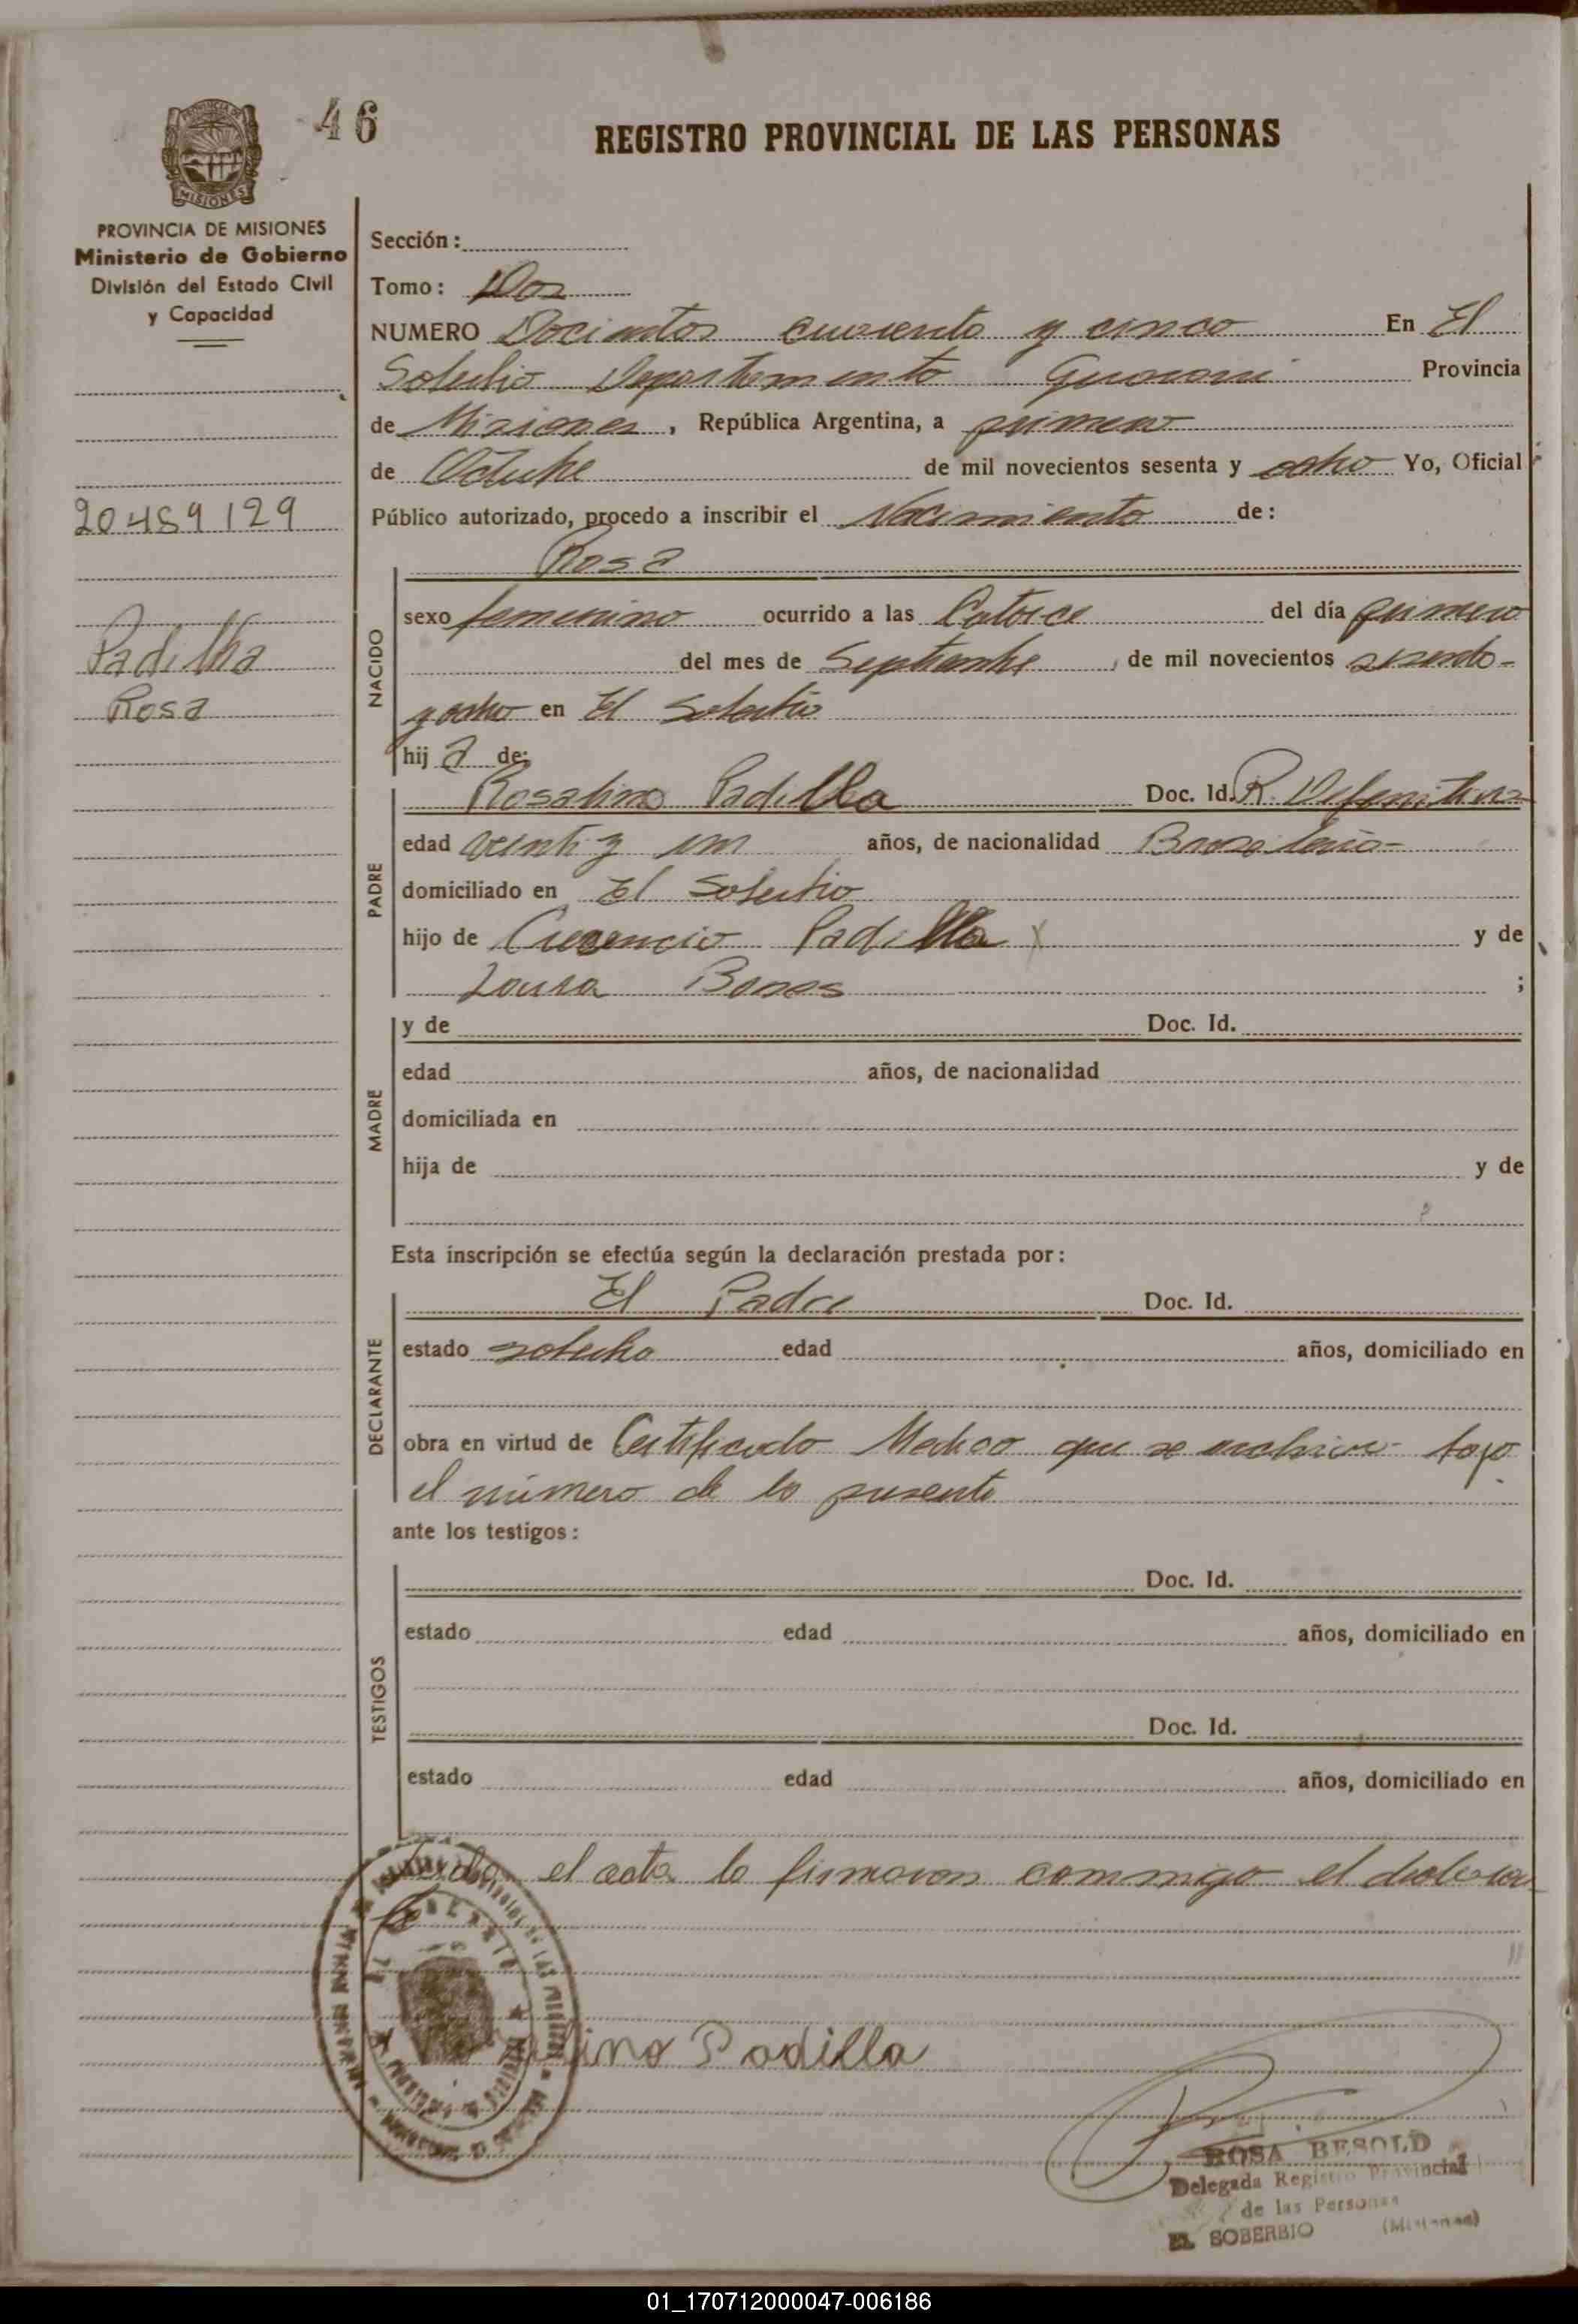 46
REGISTRO PROVINCIAL DE LAS PERSONAS
PROVINCIA DE
MISIONES
PROVINCIA DE MISIONES
Ministerio de Gobierno
División del Estado Civil
y Capacidad
20489129
Padilha
Rosa
Sección:
Tomo: Dos
NUMERO Docientos cuarenta y cinco En El
Soberbio Departamento Guarani Provincia
de Misiones, República Argentina, a primero
de Octubre de mil novecientos sesenta y ocho Yo, Oficial
Público autorizado, procedo a inscribir el Nacimiento de:
Rosa
NACIDO
sexo femenino ocurrido a las Catorce del día primero
del mes de Septiembre, de mil novecientos sesenta-
y ocho en El Soberbio
hij a de:
PADRE
Rosalino Padilla Doc. Id. R. Definitiva
edad veinti y un años, de nacionalidad Brasileña-
domiciliado en El Soberbio
hijo de Crecencio Padilla x y de
Laura ;
MADRE
y de Doc. Id.
edad años, de nacionalidad
domiciliada en
hija de y de
Esta inscripción se efectúa según la declaración prestada por:
DECLARANTE
El Padre Doc. Id.
estado soltero edad años, domiciliado en
obra en virtud de Certificado Medico que se archiva bajo
el número de la presente
ante los testigos:
TESTIGOS
Doc. Id.
estado edad años, domiciliado en
Doc. Id.
estado edad años, domiciliado en
Leida el acta la firmaron conmigo el declaran
te
lino Padilla
ROSA BESOLD
Delegada Registro Provincial
de las Personas
EL SOBERBIO (Misiones)
01_170712000047-006186